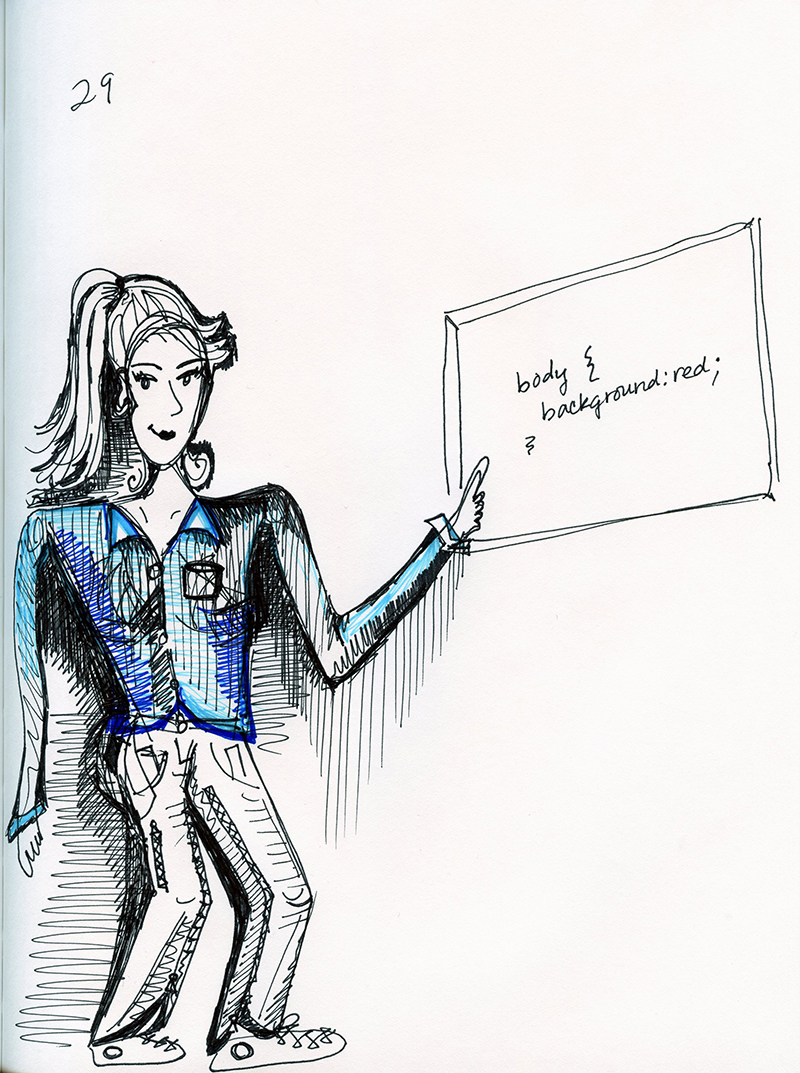 29
body {
background:red;
}